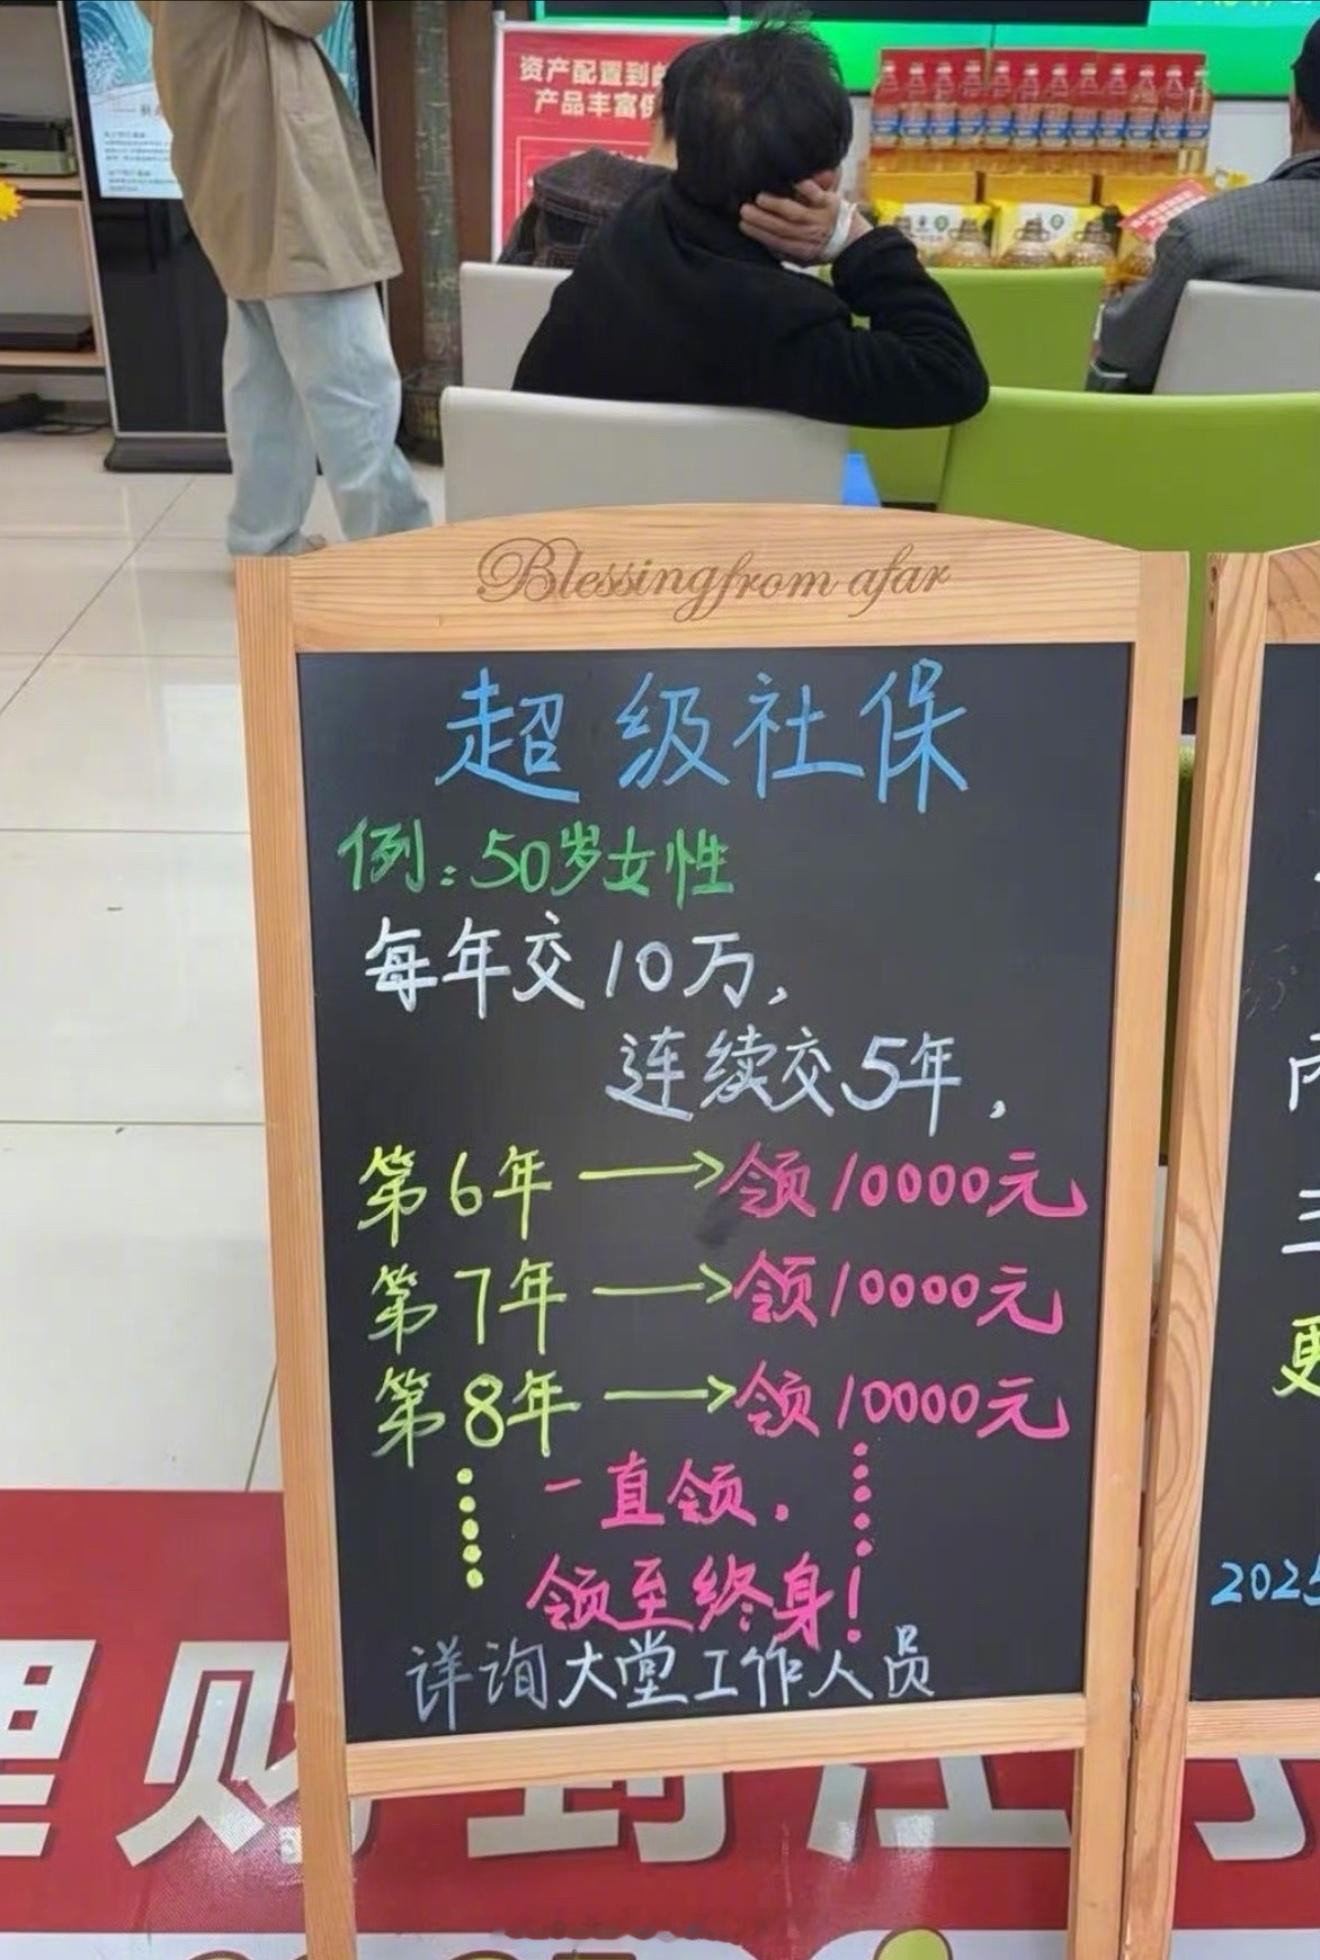 资产配置到
产品丰富
Blessing from afar
超级社保
例:50岁女性
每年交10万,
连续交5年,
第6年→领10000元
第7年→领10000元
第8年→领10000元
一直领.
领至终身!
详询大堂工作人员
三
更
2025
理财到